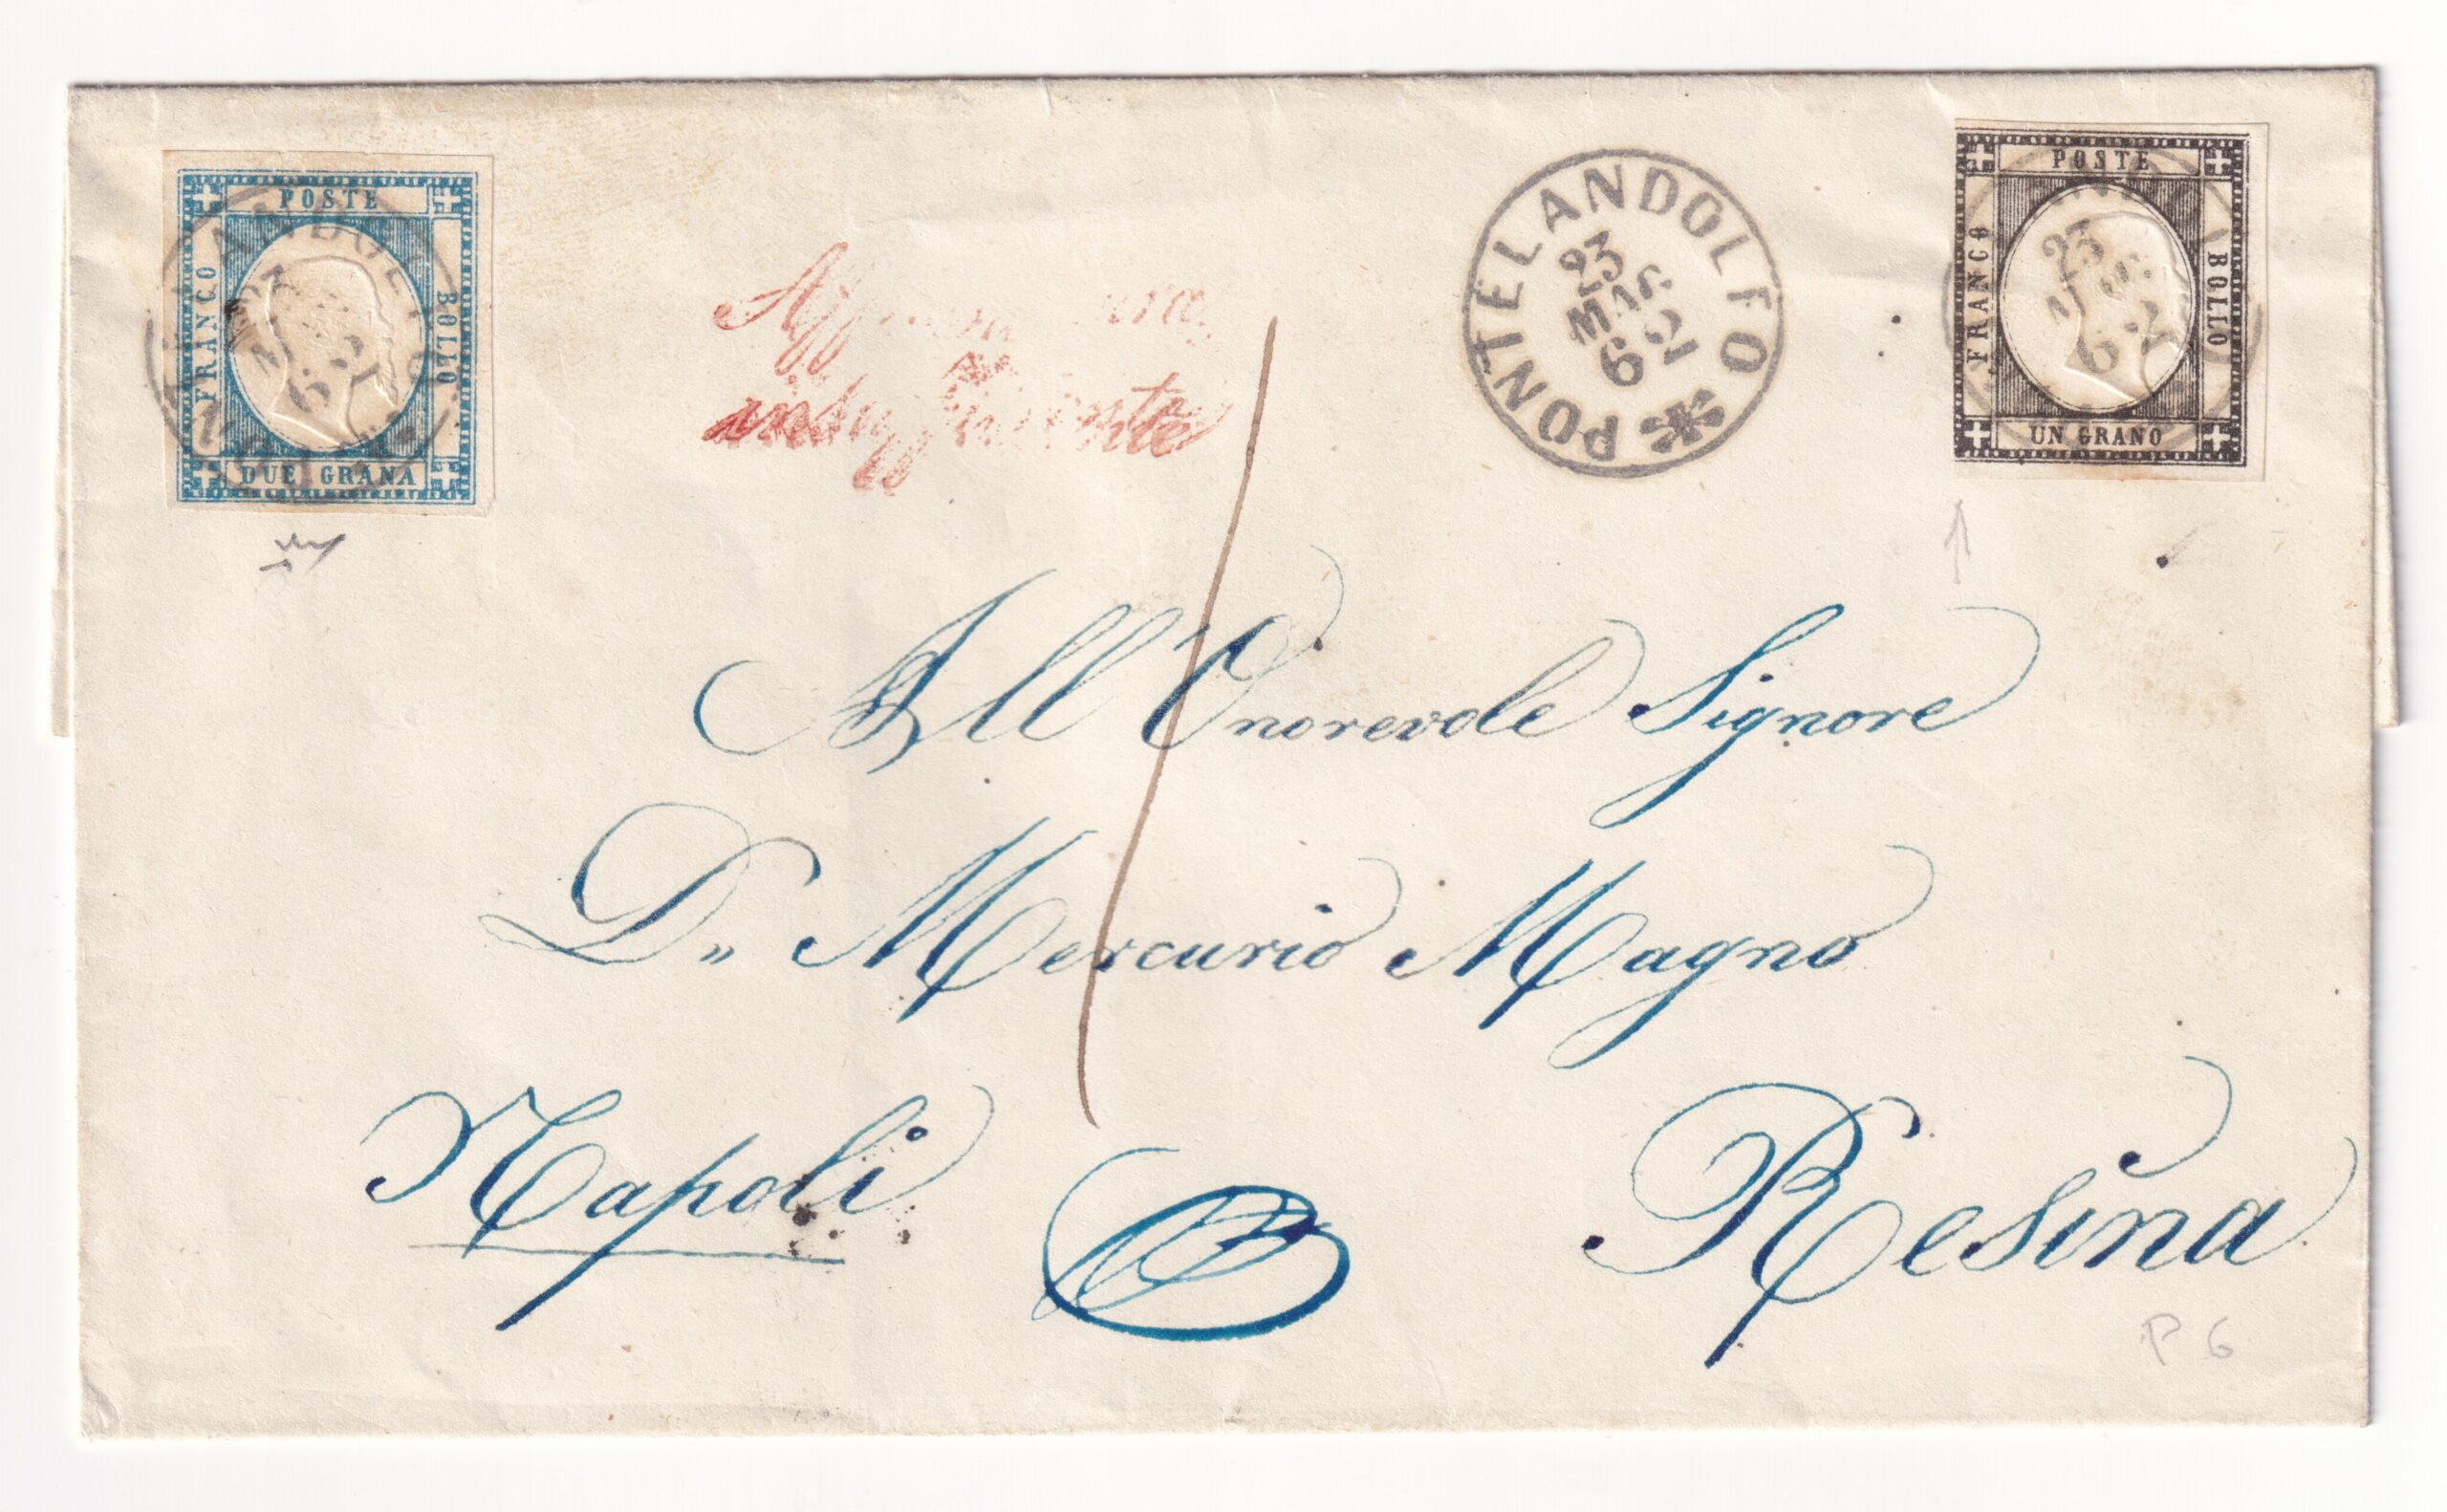 POSTE
FRANCO
BOLLO
DUE GRANA
insufficiente
PONTELANDOLFO
23
MAG
62
POSTE
FRANCO
BOLLO
UN GRANO
23
62
All'Onorevole Signore
D„ Mercurio Magno
Napoli
Resina
P 6